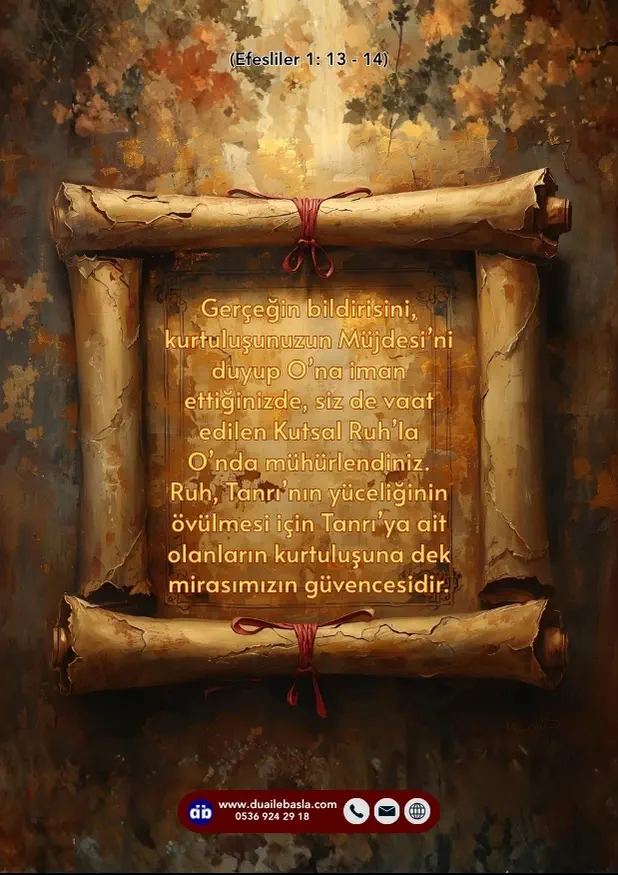 (Efesliler 1: 13 - 14)
Gerçeğin bildirisini,
kurtuluşunuzun Müjdesi’ni
duyup O’na iman
ettiğinizde, siz de vaat
edilen Kutsal Ruh’la
O’nda mühürlendiniz.
Ruh, Tanrı’nın yüceliğinin
övülmesi için Tanrı’ya ait
olanların kurtuluşuna dek
mirasımızın güvencesidir.
www.duailebasla.com
0536 924 29 18